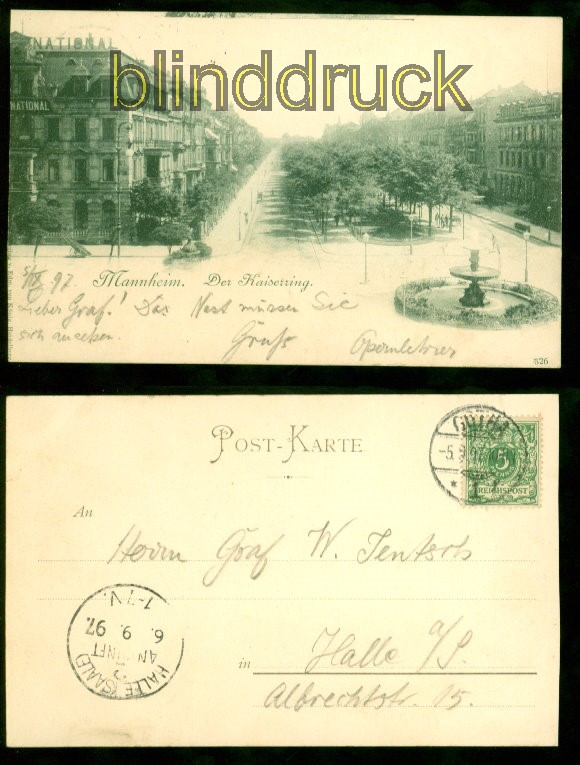 NATIONAL
NATIONAL
blinddruck
5/IX 97. Mannheim. Der Kaiserring.
Lieber Graf! Das Nest müssen Sie
sich ansehen. Gruß
526
POST-KARTE
GOTHA
-5.9.
5
REICHSPOST
An
Herrn Graf W. Jentsch
in Halle a/S.
Albrechtstr. 15.
HALLE (SAALE)
ANKUNFT
6. 9. 97.
1-7 V.